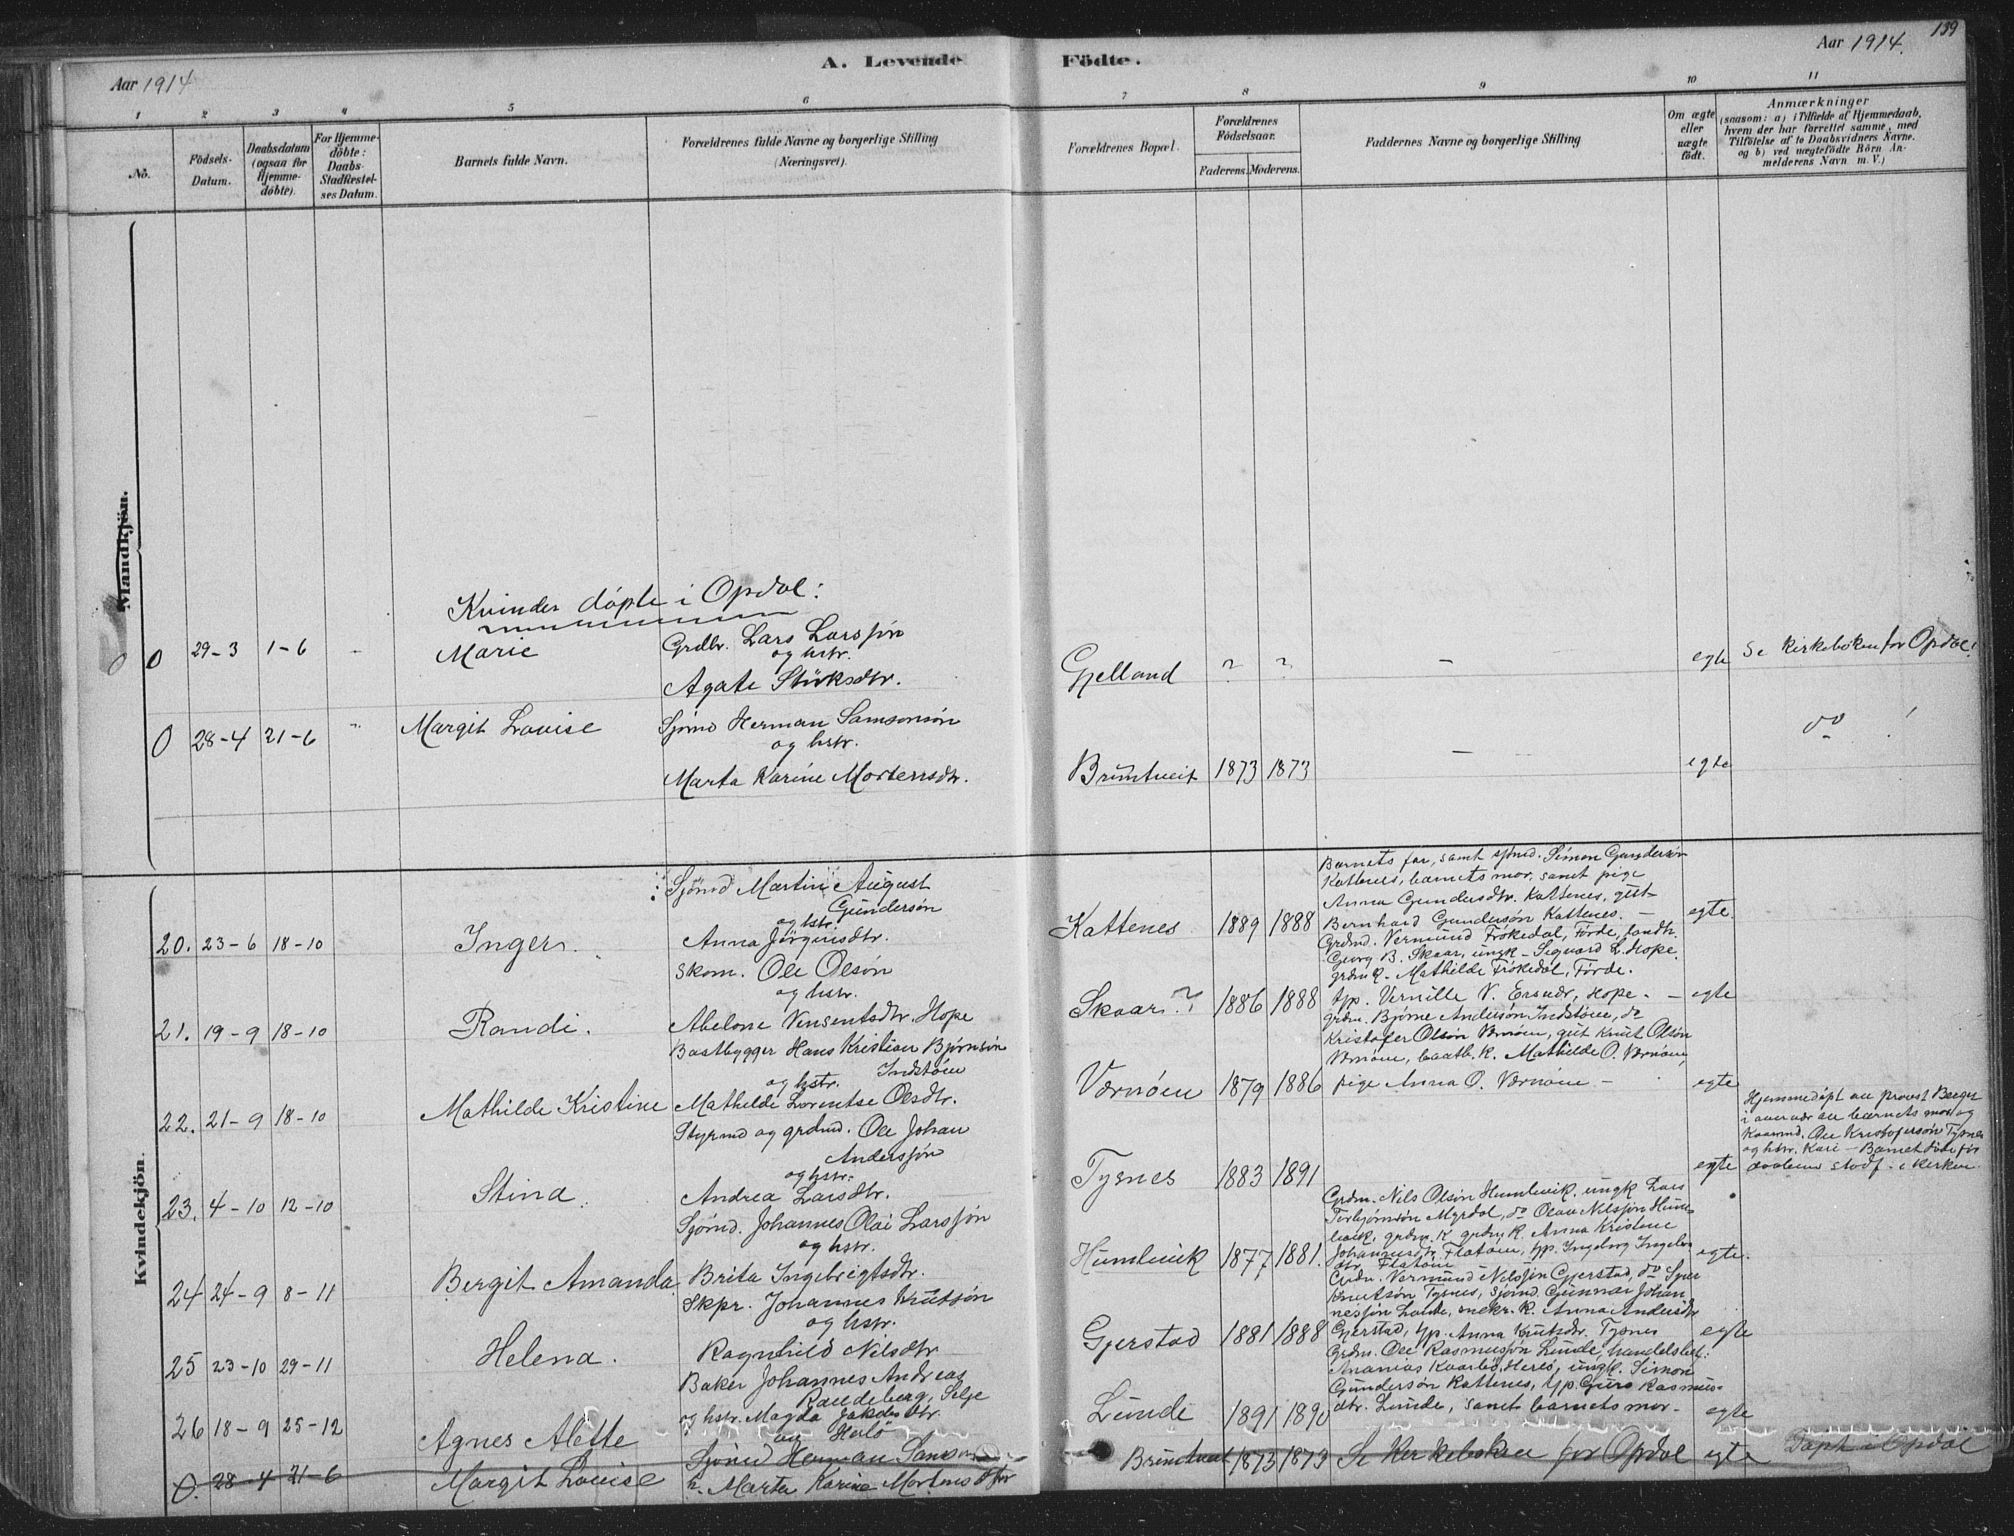 139
Aar 1914
A. Levende
Födte.
Aar 1914.
1 2 3 4 5 6 7 8 9 10 11
No.
Födsels-
Datum.
Daabsdatum
(ogsaa for
Hjemme-
döbte).
For Hjemme-
döbte:
Daabs-
Stadfæstel-
ses Datum.
Barnets fulde Navn.
Forældrenes fulde Navne og borgerlige Stilling
(Næringsvei).
Forældrenes Bopæl.
Forældrenes
Födselsaar.
Faderens. Moderens.
Faddernes Navne og borgerlige Stilling
Om ægte
eller
uægte
födt.
Anmærkninger
(saasom: a) i Tilfælde af Hjemmedaab,
hvem der har forrettet samme, med
Tilföielse af to Daabsvidners Navne.
og b) ved uægtefödte Börn An-
melderens Navn m. V.)
Mandkjön.
Kvinder döpte i Opdal:
0 29-3 1-6 - Marie
Grdbr. Lars Larssøn
og hstr.
Agate Størksdtr.
Gjelland ? ? - egte Se kirkeboken for Opdal!
0 28-4 21-6 Margit Lovise
Sjømd Herman Samsonsøn
og hstr.
Marta Karine Mortensdtr.
Brüntveit 1873 1873 - egte do !
Kvindekjön.
20. 23-6 18-10 Inger.
Sjømd Martin August
Gundersøn
og hstr.
Anna Jørginsdtr.
Kattenes 1889 1888
Barnets far, samt sjømd. Simon Gundersøn
Kattenes, barnets mor, samt pige
Anna Gundersdtr. Kattenes, gut
Bernhard Gundersøn Kattenes. -
egte.
21. 19-9 18-10 Randi.
Skom. Ole Olsøn
og hstr.
Abelone Vensentsdtr. Hope
Skaar. ? 1886 1888
Grdmd. Vermund Frøkedal, Førde, landh.
Georg B. Skaar, ungk. Sigvard L. Hope,
grdmk. Mathilde Frøkedal, Førde.
t/p. Vernille V. Hope. -
egte
22. 21-9 18-10 Mathilde Kristine
Baatbygger Hans Kristian Bjørnsøn
Indstøen
og hstr.
Mathilde Lorentse Olsdtr.
Værnøen 1879 1886
grdm. Bjørne Andersøn Indstøen, do
Kristofer Olsøn Værnøen, gut Knut Olsøn
Vernøen, baatb. K. Mathilde O. Vernøen,
pige Anna O. Værnøen -
egte
23. 4-10 12-10 Stina.
Styrmd og grdmd. Ole Johan
Anderssøn
og hstr.
Andrea Larsdtr.
Tysnes 1883 1891
egte
Hjemmedøpt av provst Berger
i overvær av barnets mor og
Kaarmd. Ole Kristofersøn Tysnes
og hstr. Kari - Barnet døde før
daaben stadf. i kirken
24 24-9 8-11 Bergit Amanda
Sjømd. Johannes Olai Larssøn
og hstr.
Brita Ingebrigtsdtr.
Humlevik 1877 1881.
Grdm. Nils Olsøn Humlevik, ungk Lars
Torbjørnsøn Myrdal, do Olav Nilssøn Hum-
levik, grdm. K grdm. K. Anna Kristine
Johannesdtr. Flatøen, t/p. Ingeborg Ingebr.
dtr. Flatøen
egte.
25 23-10 29-11 Helena.
Skpr. Johannes Knutsøn
og hstr.
Ragnhild Nilsdtr
Gjerstad 1881 1888
Grdm. Vermund Nilssøn Gjerstad, do Sjur
Knutsøn Tysnes, sjømd. Gunnar Johan-
nessøn Lande, snekr. K. Anna Andersdtr
Gjerstad, t/p. Anna Knutsdtr. Tysnes
egte
26 18-9 25-12 Agnes Alette
Baker Johannes Andreas
Raudeberg, Selje
og hstr. Magda Jakobsdtr.
Lunde 1891 1890
Grdm. Ole Rasmussøn Lunde, handelsbet:
Ananias Kaarbø, Herlø, ungk. Simon
Gundersøn Kattenes, t/p. Guro Rasmus-
dtr. Lunde, samt barnets mor.
egte
0. 28-4 21-6 Margit Lovise
Sjømd Herman Samsonsøn
h. Marta Karine Mortensdtr
Brüntveit 1873 1873 Se Kirkeboken for Opdal egte Døpt i Opdal